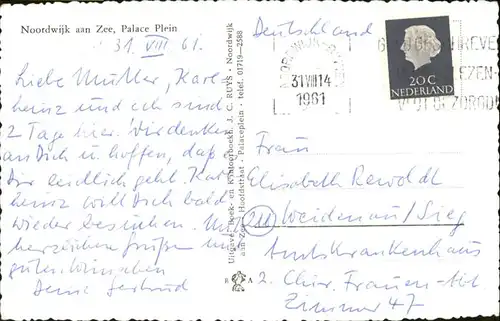 Noordwijk aan Zee, Palace Plein
31. VIII. 61.
Liebe Mutter, Karl-
heinz und ich sind
2 Tage hier. Wir denken
an Dich u. hoffen, daß
Dir endlich geht. Karl
heinz will Dich bald
wieder besuchen. Mit
herzlichen Grüßen und
guten Wünschen
Deine Gertrud
Uitgave: Boek- en Kantoorboekh. J. C. RUYS - Noordwijk
aan Zee - Hoofdstraat - Palaceplein - telef. 01719-2588
R A
Deutschland
31 VIII 14
1961
20 C
NEDERLAND
Frau
Elisabeth Rewoldt
Weidenau/Sieg
Amtskrankenhaus
2. Chir. Frauen-Abt.
Zimmer 47